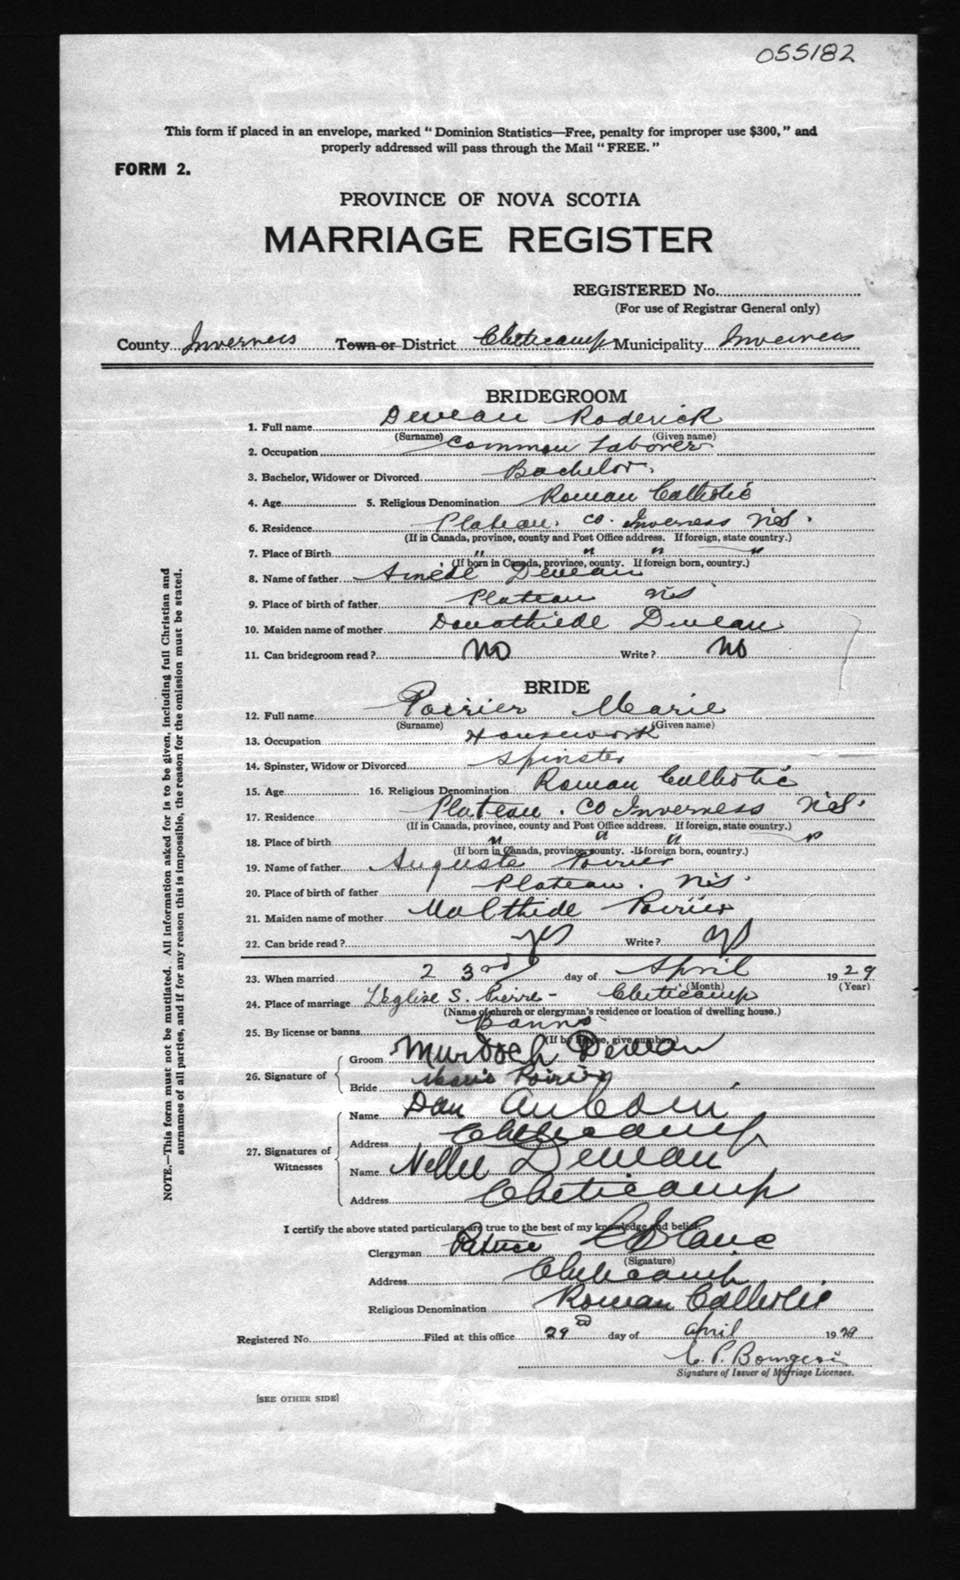 055182
This form if placed in an envelope, marked "Dominion Statistics—Free, penalty for improper use $300," and
properly addressed will pass through the Mail "FREE."
FORM 2.
PROVINCE OF NOVA SCOTIA
MARRIAGE REGISTER
REGISTERED No.
(For use of Registrar General only)
County Inverness Town or District Cheticamp Municipality Inverness
BRIDEGROOM
1. Full name Deveau Roderick
(Surname) (Given name)
2. Occupation Common Laborer
3. Bachelor, Widower or Divorced Bachelor.
4. Age 5. Religious Denomination Roman Catholic
6. Residence Plateau. co. Inverness N.S.
(If in Canada, province, county and Post Office address. If foreign, state country.)
7. Place of Birth " " " "
(If born in Canada, province, county. If foreign born, country.)
8. Name of father Deveau
9. Place of birth of father Plateau N.S
10. Maiden name of mother Deveau
11. Can bridegroom read? No Write? No
BRIDE
12. Full name Poirier Marie
(Surname) (Given name)
13. Occupation Housework
14. Spinster, Widow or Divorced Spinster
15. Age 16. Religious Denomination Roman Catholic
17. Residence Plateau. Co Inverness N.S.
(If in Canada, province, county and Post Office address. If foreign, state country.)
18. Place of birth " " " "
(If born in Canada, province, county. If foreign born, country.)
19. Name of father Auguste Poirier
20. Place of birth of father Plateau. N.S.
21. Maiden name of mother Poirier
22. Can bride read? yes Write? yes
23. When married 23rd day of April 1929
(Month) (Year)
24. Place of marriage L'eglise S. Pierre - Cheticamp
(Name of church or clergyman's residence or location of dwelling house.)
25. By license or banns Banns
(If by license, give number.)
26. Signature of
Groom Murdoch Deveau
Bride Marie Poirier
27. Signatures of Witnesses
Name Dan AuCoin
Address Cheticamp
Name Nellie Deveau
Address Cheticamp
I certify the above stated particulars are true to the best of my knowledge and belief.
Clergyman Patrice LeBlanc
(Signature)
Address Cheticamp
Religious Denomination Roman Catholic
Registered No. Filed at this office 29 day of April 1929
Signature of Issuer of Marriage Licenses.
[SEE OTHER SIDE]
NOTE.—This form must not be mutilated. All information asked for is to be given, including full Christian and
surnames of all parties, and if for any reason this is impossible, the reason for the omission must be stated.